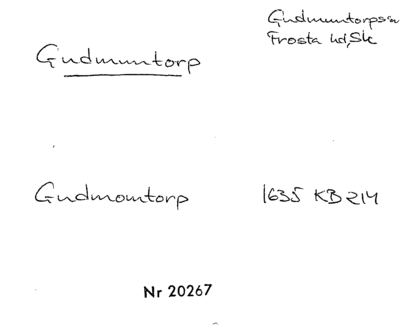 Gudmuntorp
Gudmuntorps sn
Frosta hd, Sk
Gudmomtorp
1635 KB 214
Nr 20267